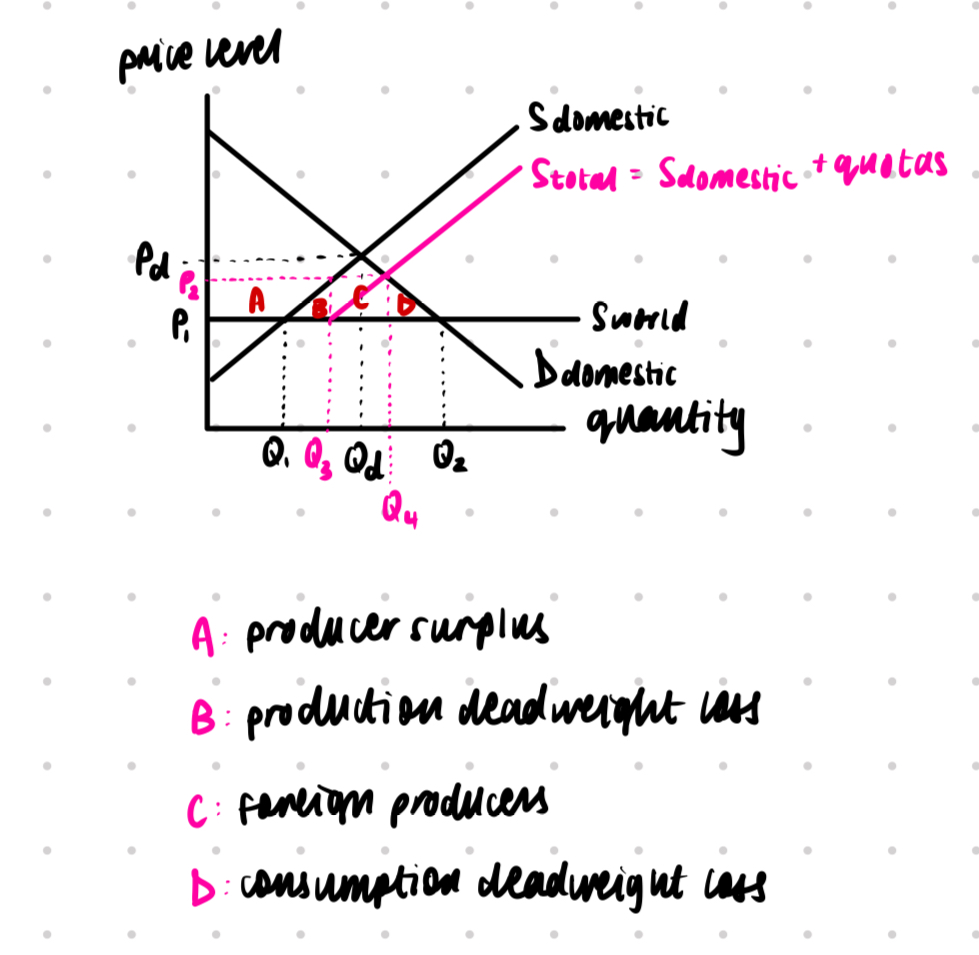 price level
Sdomestic
Stotal = Sdomestic + quotas
Pd
P2
A
B
C
D
P1
Sworld
Ddomestic
quantity
Q1
Q3
Qd
Q2
Q4
A: producer surplus
B: production deadweight loss
C: foreign producers
D: consumption deadweight loss